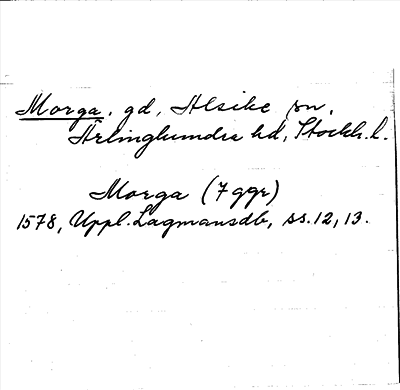 Morga, gd, Alsike sn,
Ärlinghundra hd, Stockh. l.
Morga (7 ggr)
1578, Uppl. Lagmansdb, ss. 12, 13.